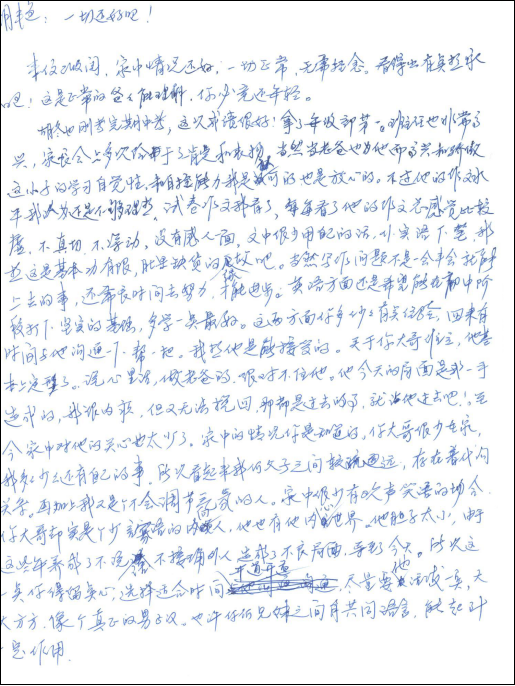 一切还好吧！
来信已收阅，家中情况还好，一切正常，无需挂念。看得出有点想家
吧！这是正常的爸人能理解，你必竟还年轻。
也刚考完期中考，这次成绩很好！拿了年级部第一，班主任也非常高
兴，家长会上多次给予了肯定和表扬，当然当老爸也为他而高兴和骄傲
这小子的学习自觉性，和自控能力我是认可的也是放心的。不过他的作文水
平我认为还是不够理想，试卷作文我看了，每每看了他的作文总感觉比较
虚，不真切，不浮动，没有感人面，文中很少用配的话，
这是基本功有限，肚里缺货的缘故吧。当然写作问题不是一会半会就能
上去的事，还需长时间去努力，才能进步。英语方面还是希望能在初中阶
段打下坚实的基础，多学一点最好。这两方面你多少有点经验，回来有
时间与他沟通一下，帮一把。我想他是能接受的。关于你大哥
本上定型了。说心里话，做老爸的，很对不住他。他今天的局面是我一手
造成的，我很内疚，但又无法挽回，那都是过去的了，就当他过去吧！至
今家中对他的关心也太少了。家中的情况你是知道的，你大哥很少在家，
我多少还有自己的事，所以看起来我们父子三间较疏远，存在着代沟
关系。再加上我又是个不会调节气氛的人。家中很少有欢声笑语的场合
你大哥却实是个少言寡语的人，他也有他内心世界。他胆子太小，由于
这些年养成了不说 不接确外人 造成了不良局面，导致今天。所以这
一点你得留点心，选择适合时间 开道开导，尽量要他活泼一点，大
大方方，像个真正的男子汉。也许你们兄妹之间有共同语言，能起到一
定作用。